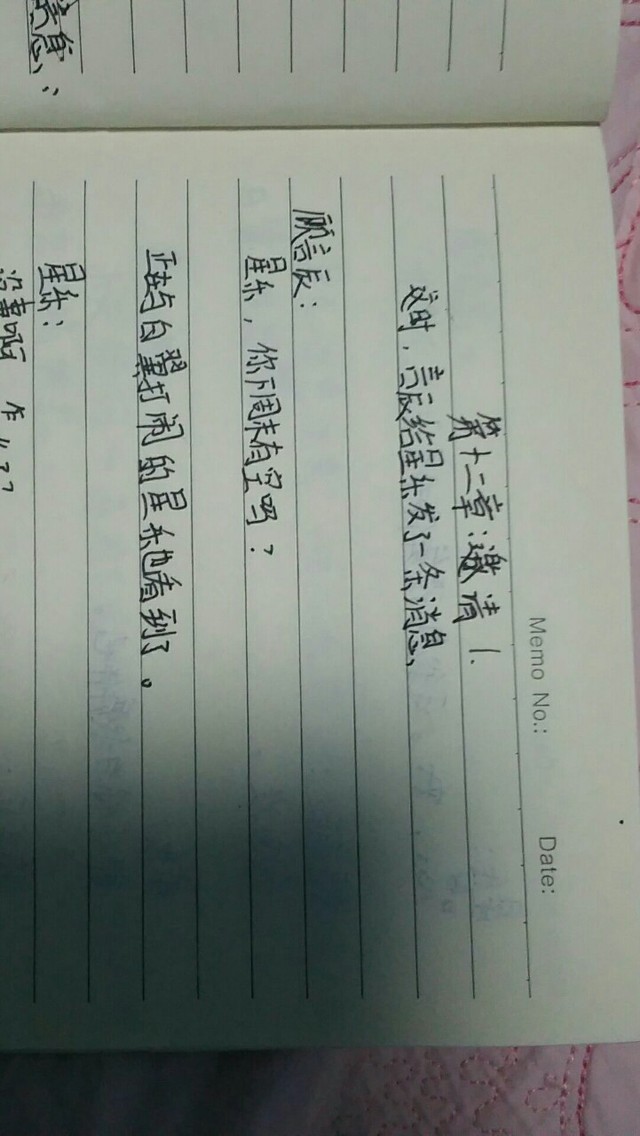 Memo No.: Date:
第十二章:邀请1.
这时，言辰给星乐发了一条消息、
顾言辰：
星乐，你下周末有空吗？
正在与白翼打闹的星乐也看到了。
星乐：
没事啊 咋了?